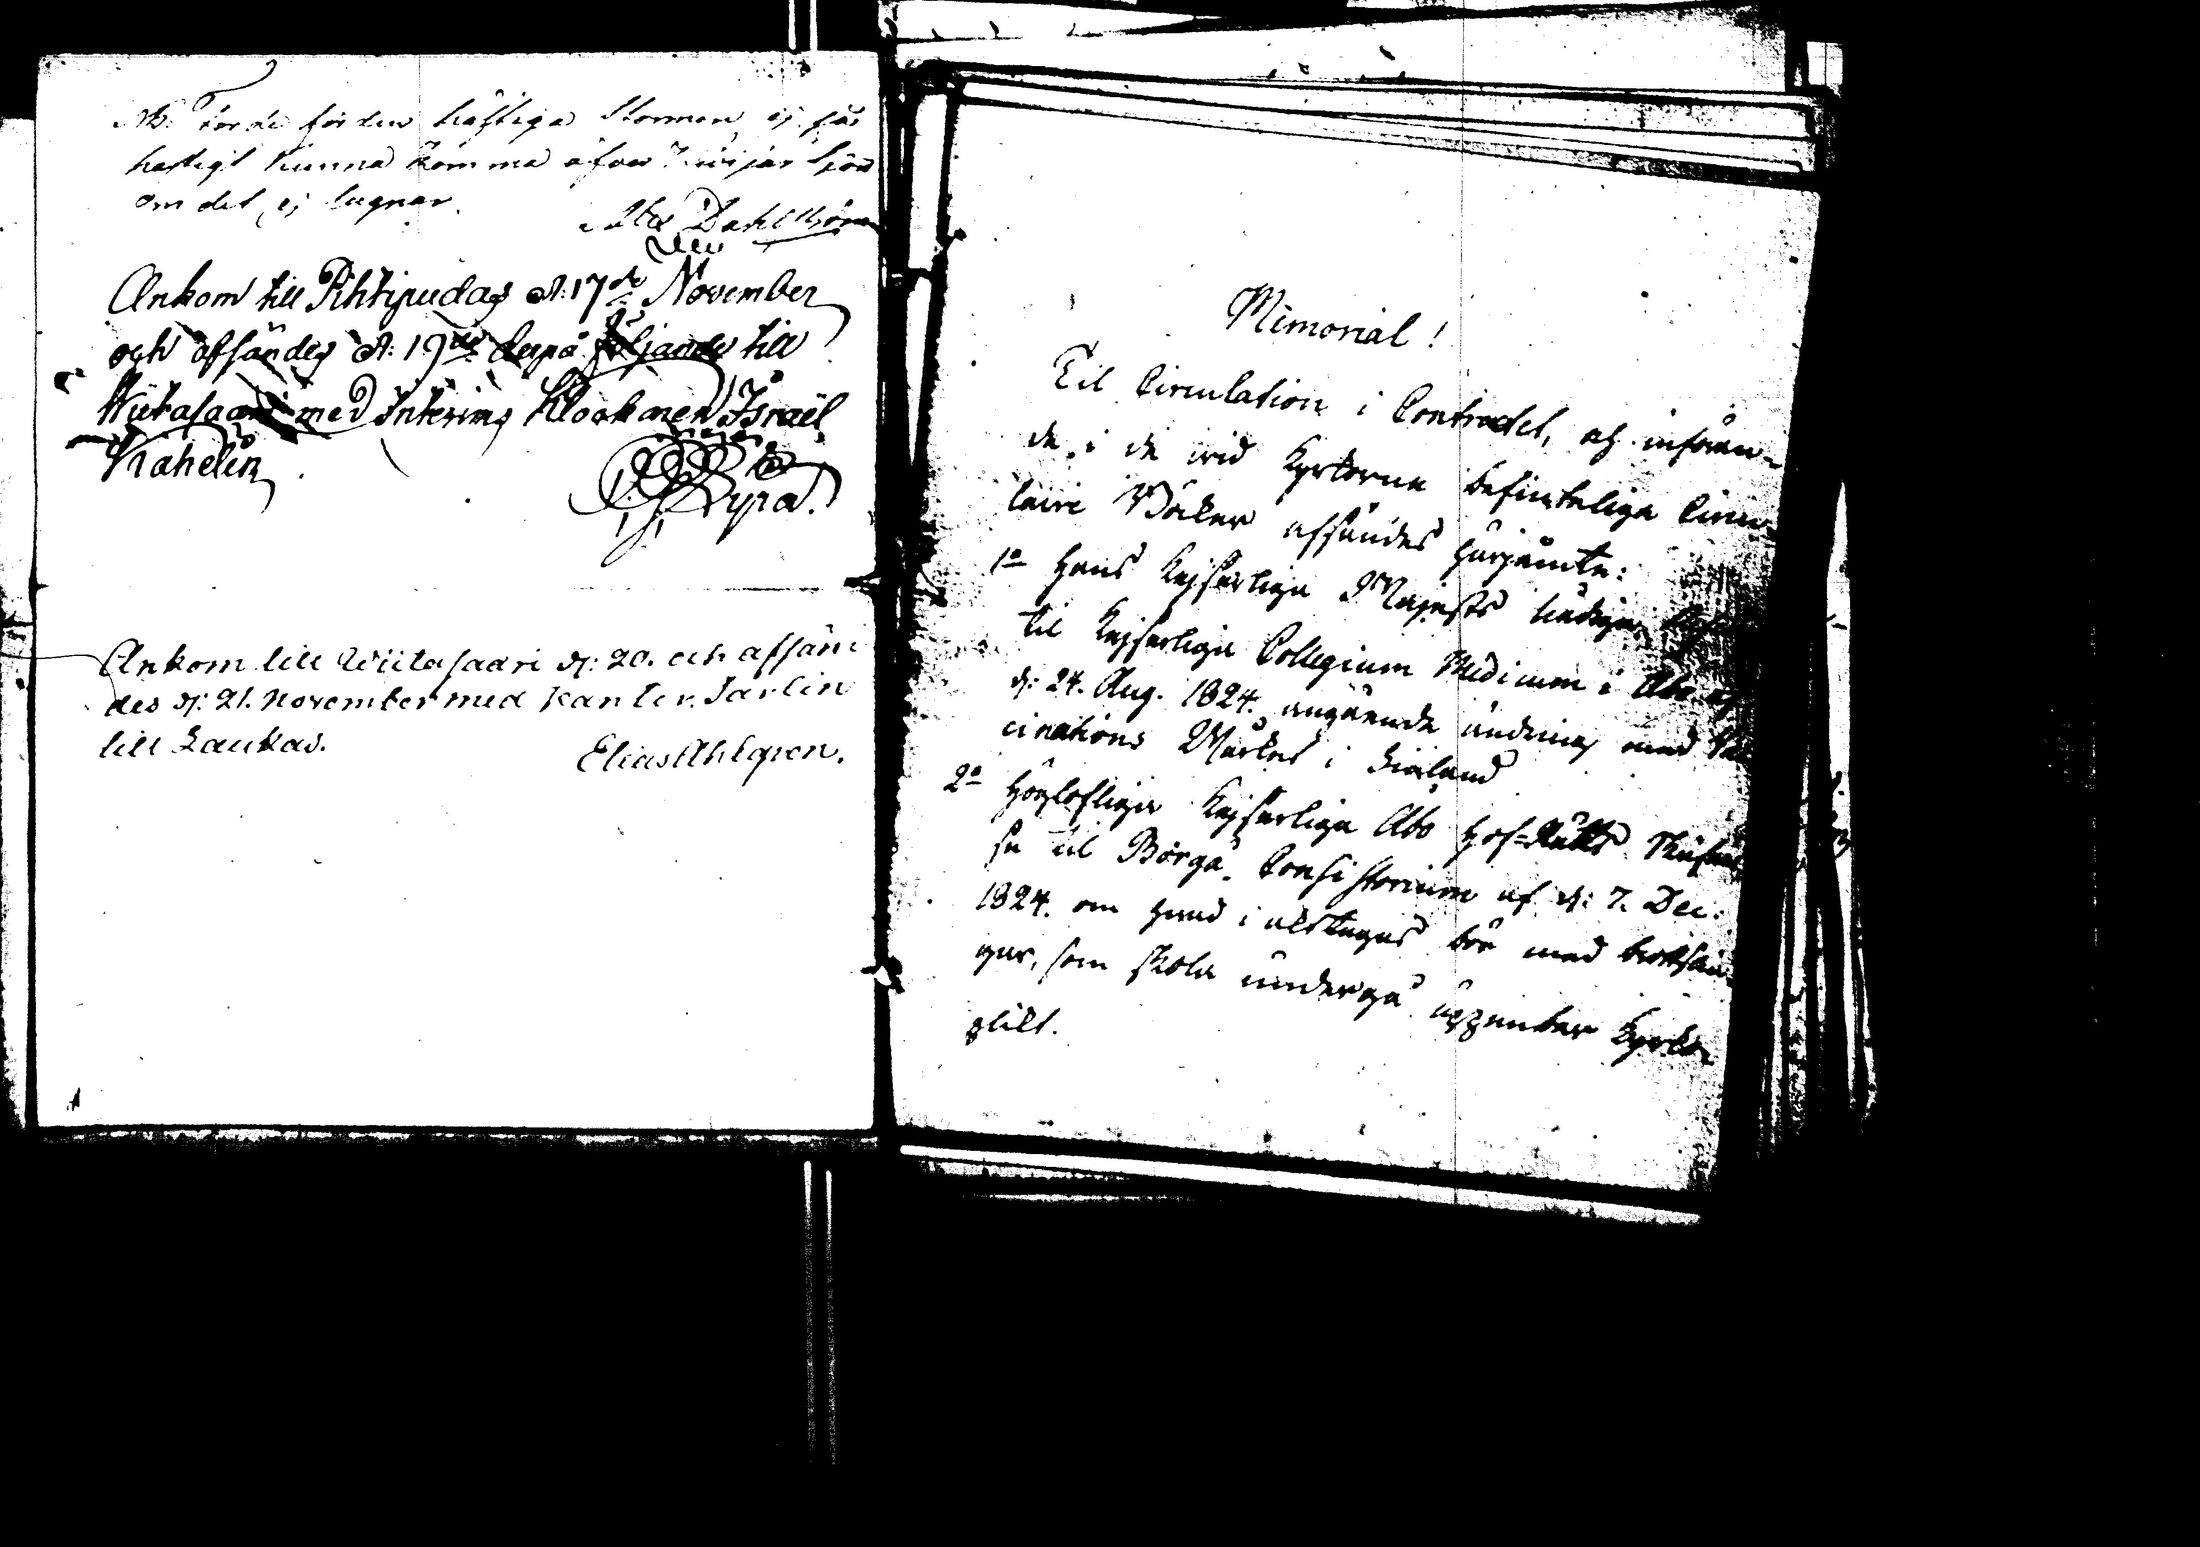 NB. Torde för den häftiga Stormen ej så
hastigt kunna komma öfver sjön
om det ej lugnar.
Dahlström
Ankom till Pihtipudas d: 17de November
och afsändes d: 19de derpå följande till
Wiitasaari med Interims Klockaren Israël
Kahelin.
Ankom till Wiitasaari d: 20. och afsän-
des d: 21. November med Kantor. Jarlin
till Laukas.
Elias Ahlgren.
Memorial!
Til Circulation i Contractet, och införan-
de i de wid Kyrkorne befinteliga Circu-
laire Böcker afsändes härjämte:
1o Hans Kejserliga Majests nådiga
til Kejserliga Collegium Medicum i Åbo af
d: 24. Aug. 1824. angående ändring med Vac-
cinations Wärket i Finland
2o Höglofliga Kejserliga Åbo Hof-Rätts Skrifwel-
se til Borgå Consistorium af d: 7. Dec:
1824. om hwad i akttagas bör med brottslin-
gar, som skola undergå uppenbar Kyrko-
plikt.